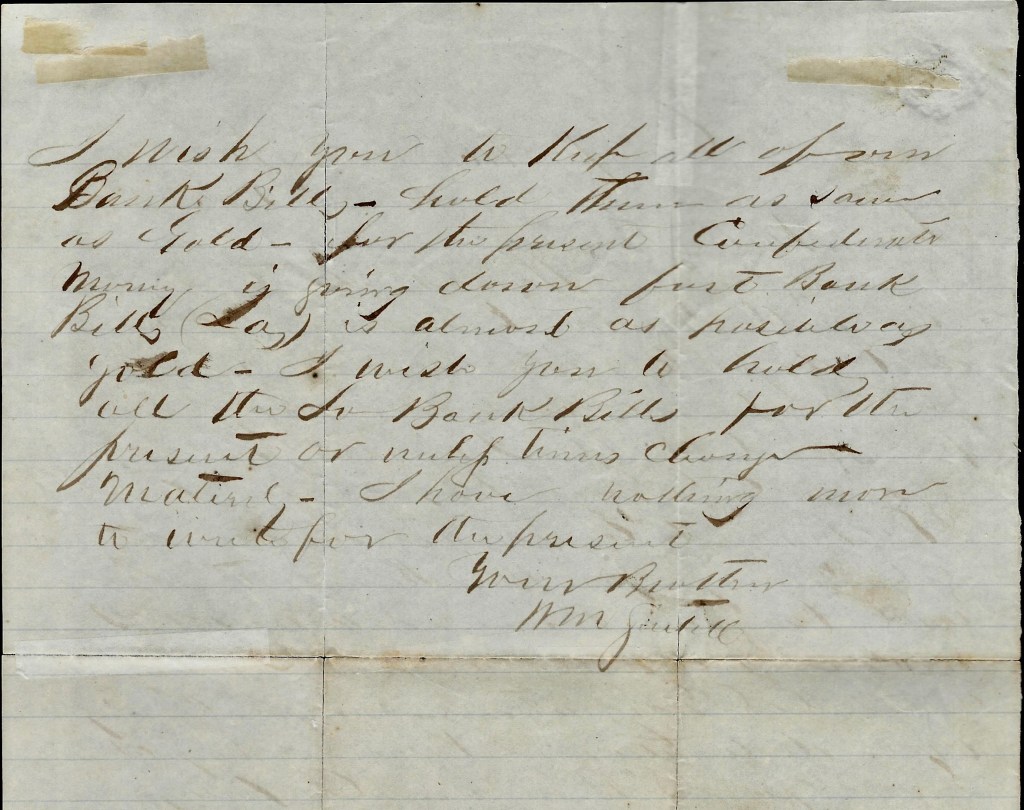 I wish you to Keep all of our
Bank Bills - hold them as same
as Gold - for the present Confederate
Money is going down fast Bank
Bills (La) is almost as positive as
gold - I wish you to hold
all the So Bank Bills for the
present or unless times change
Materily - I have nothing more
to write for the present
Your Brother
Wm